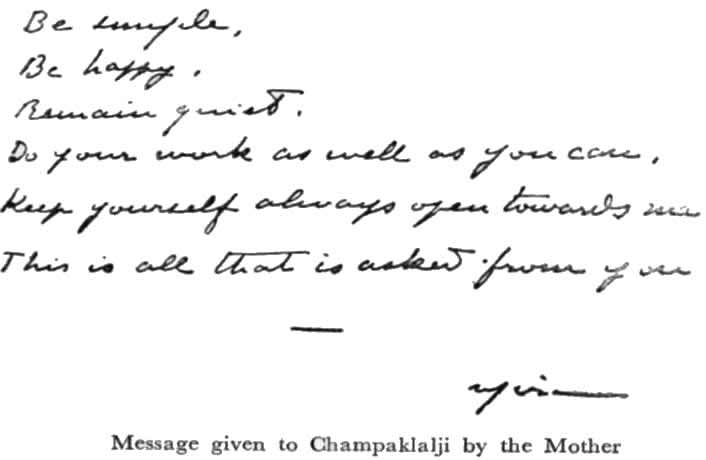 Be simple,
Be happy.
Remain quiet.
Do your work as well as you can,
Keep yourself always open towards me
This is all that is asked from you
—
Message given to Champaklalji by the Mother